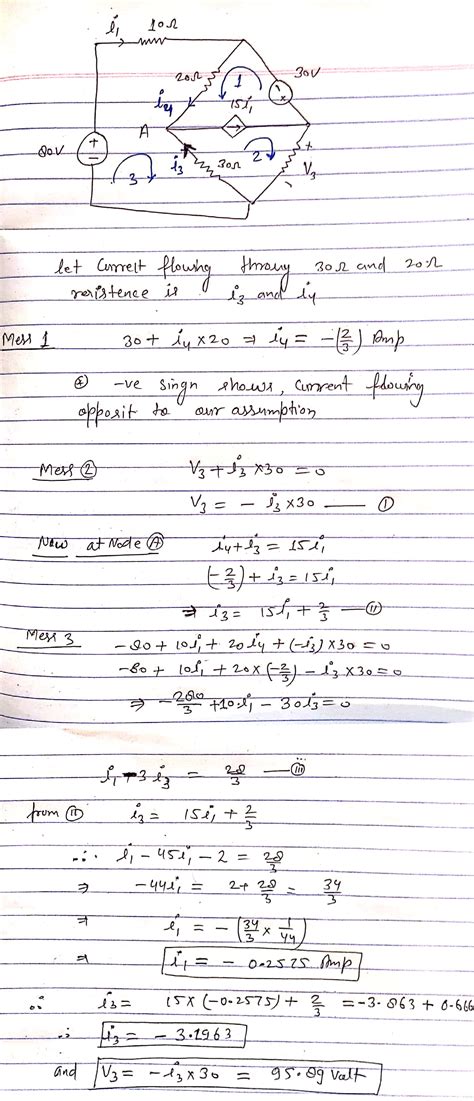 i₁ 10Ω
20Ω 1 30V
i₄ 15i₁
A
80V 3 i₃ 30Ω 2 + V₃ -
let Curreit flowing throuy 30Ω and 20Ω
resistence is i₃ and i₄
Mess 1 30 + i₄ × 20 ⇒ i₄ = -(2/3) Amp
-ve singn shows, current flowing
opposit to our assumption
Mess ② V₃ + i₃ × 30 = 0
V₃ = - i₃ × 30 —— ①
Now at Node Ⓐ i₄ + i₃ = 15i₁
(-2/3) + i₃ = 15i₁
⇒ i₃ = 15i₁ + 2/3 — ⑪
Mess 3 -80 + 10i₁ + 20i₄ + (-i₃) × 30 = 0
-80 + 10i₁ + 20×(-2/3) - i₃ × 30 = 0
⇒ -280/3 + 10i₁ - 30i₃ = 0
i₁ - 3i₃ = 28/3 — (iii)
from ⑪ i₃ = 15i₁ + 2/3
∴ i₁ - 45i₁ - 2 = 28/3
⇒ -44i₁ = 2 + 28/3 = 34/3
⇒ i₁ = -(34/3 × 1/44)
⇒ i₁ = - 0.2575 Amp
∴ i₃ = 15×(-0.2575) + 2/3 = -3.863 + 0.666
∴ i₃ = - 3.1963
and V₃ = -i₃ × 30 = 95.89 Valt